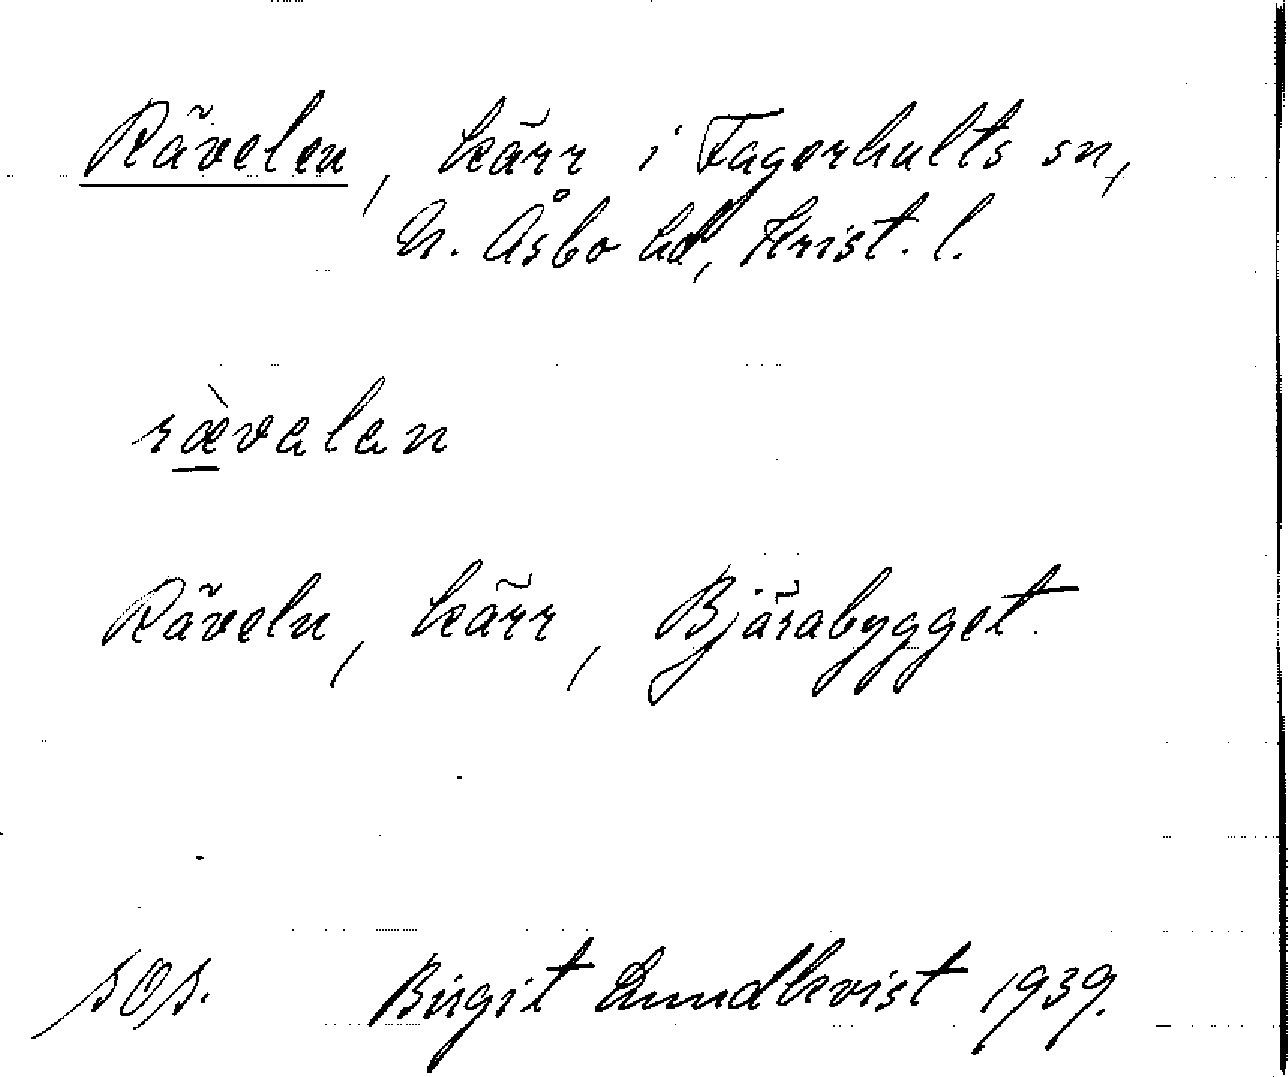 Rävelen, kärr i Fagerhults sn,
N. Åsbo hd, Krist. l.
rævalan
Räveln, kärr, Bjärabygget.
sos. Birgit Lundkvist 1939.